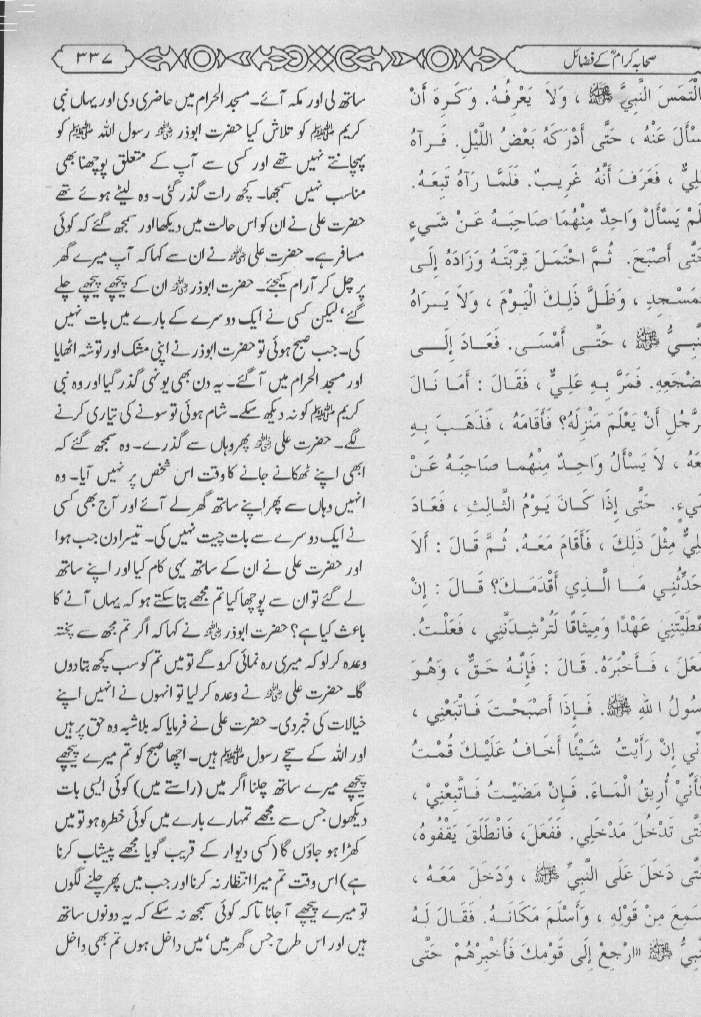 صحابہ کرامؓ کے فضائل
٣٣٧
النَّبِيَّ ﷺ ، وَلاَ يَعْرِفُهُ. وَكَرِهَ أَنْ
عَنْهُ ، حَتَّى أَدْرَكَهُ بَعْضُ اللَّيْلِ. فَرَآهُ
، فَعَرَفَ أَنَّهُ غَرِيبٌ. فَلَمَّا رَآهُ تَبِعَهُ.
يَسْأَلْ وَاحِدٌ مِنْهُمَا صَاحِبَهُ عَنْ شَيْءٍ
أَصْبَحَ. ثُمَّ احْتَمَلَ قِرْبَتَهُ وَزَادَهُ إِلَى
، وَظَلَّ ذَلِكَ الْيَوْمَ ، وَلاَ يَرَاهُ
ﷺ ، حَتَّى أَمْسَى. فَعَادَ إِلَى
فَمَرَّ بِهِ عَلِيٌّ ، فَقَالَ : أَمَا نَالَ
أَنْ يَعْلَمَ مَنْزِلَهُ؟ فَأَقَامَهُ ، فَذَهَبَ بِهِ
، لاَ يَسْأَلُ وَاحِدٌ مِنْهُمَا صَاحِبَهُ عَنْ
حَتَّى إِذَا كَانَ يَوْمُ الثَّالِثِ ، فَعَادَ
مِثْلَ ذَلِكَ ، فَأَقَامَ مَعَهُ. ثُمَّ قَالَ : أَلاَ
مَا الَّذِي أَقْدَمَكَ؟ قَالَ : إِنْ
عَهْدًا وَمِيثَاقًا لَتُرْشِدَنَّنِي ، فَعَلْتُ.
فَأَخْبَرَهُ. قَالَ : فَإِنَّهُ حَقٌّ ، وَهُوَ
الله ﷺ. فَإِذَا أَصْبَحْتَ فَاتْبَعْنِي ،
إِنْ رَأَيْتُ شَيْئًا أَخَافُ عَلَيْكَ قُمْتُ
أُرِيقُ الْمَاءَ. فَإِنْ مَضَيْتُ فَاتْبَعْنِيْ ،
تَدْخُلَ مَدْخَلِي. فَفَعَلَ، فَانْطَلَقَ يَقْفُوهُ،
دَخَلَ عَلَى النَّبِيِّ ﷺ ، وَدَخَلَ مَعَهُ ،
مِنْ قَوْلِهِ ، وَأَسْلَمَ مَكَانَهُ. فَقَالَ لَهُ
ﷺ «ارْجِعْ إِلَى قَوْمِكَ فَأَخْبِرْهُمْ حَتَّى
ساتھ لی اور مکہ آئے۔ مسجد الحرام میں حاضری دی اور یہاں نبی
کریم ﷺ کو تلاش کیا حضرت ابوذر رضی اللہ عنہ رسول اللہ ﷺ کو
پہچانتے نہیں تھے اور کسی سے آپ کے متعلق پوچھنا بھی
مناسب نہیں سمجھا۔ کچھ رات گذر گئی۔ وہ لیٹے ہوئے تھے
حضرت علی نے ان کو اس حالت میں دیکھا اور سمجھ گئے کہ کوئی
مسافر ہے۔ حضرت علی رضی اللہ عنہ نے ان سے کہا کہ آپ میرے گھر
پر چل کر آرام کیجئے۔ حضرت ابوذر رضی اللہ عنہ ان کے پیچھے پیچھے چلے
گئے‘ لیکن کسی نے ایک دوسرے کے بارے میں بات نہیں
کی۔ جب صبح ہوئی تو حضرت ابوذر نے اپنی مشک اور توشہ اٹھایا
اور مسجد الحرام میں آ گئے۔ یہ دن بھی یونہی گذر گیا اور وہ نبی
کریم ﷺ کو نہ دیکھ سکے۔ شام ہوئی تو سونے کی تیاری کرنے
لگے۔ حضرت علی رضی اللہ عنہ پھر وہاں سے گذرے۔ وہ سمجھ گئے کہ
ابھی اپنے ٹھکانے جانے کا وقت اس شخص پر نہیں آیا۔ وہ
انہیں وہاں سے پھر اپنے ساتھ گھر لے آئے اور آج بھی کسی
نے ایک دوسرے سے بات چیت نہیں کی۔ تیسرا دن جب ہوا
اور حضرت علی نے ان کے ساتھ یہی کام کیا اور اپنے ساتھ
لے گئے تو ان سے پوچھا کیا تم مجھے بتا سکتے ہو کہ یہاں آنے کا
باعث کیا ہے؟ حضرت ابوذر رضی اللہ عنہ نے کہا کہ اگر تم مجھ سے پختہ
وعدہ کر لو کہ میری رہ نمائی کرو گے تو میں تم کو سب کچھ بتا دوں
گا۔ حضرت علی رضی اللہ عنہ نے وعدہ کر لیا تو انہوں نے انہیں اپنے
خیالات کی خبر دی۔ حضرت علی نے فرمایا کہ بلاشبہ وہ حق پر ہیں
اور اللہ کے سچے رسول ﷺ ہیں۔ اچھا صبح کو تم میرے پیچھے
پیچھے میرے ساتھ چلنا اگر میں (راستے میں) کوئی ایسی بات
دیکھوں جس سے مجھے تمہارے بارے میں کوئی خطرہ ہو تو میں
کھڑا ہو جاؤں گا (کسی دیوار کے قریب گویا مجھے پیشاب کرنا
ہے) اس وقت تم میرا انتظار نہ کرنا اور جب میں پھر چلنے لگوں
تو میرے پیچھے آ جانا تاکہ کوئی سمجھ نہ سکے کہ یہ دونوں ساتھ
ہیں اور اس طرح جس گھر میں‘ میں داخل ہوں تم بھی داخل